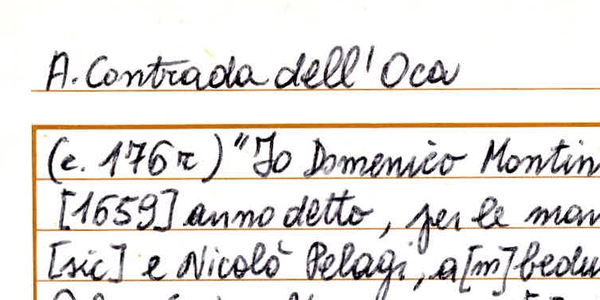 A. Contrada dell'Oca
(c. 176r) "Io Domenico Montin
[1659] anno detto, per le man
[sic] e Nicolò Pelagi, a[m]bedu